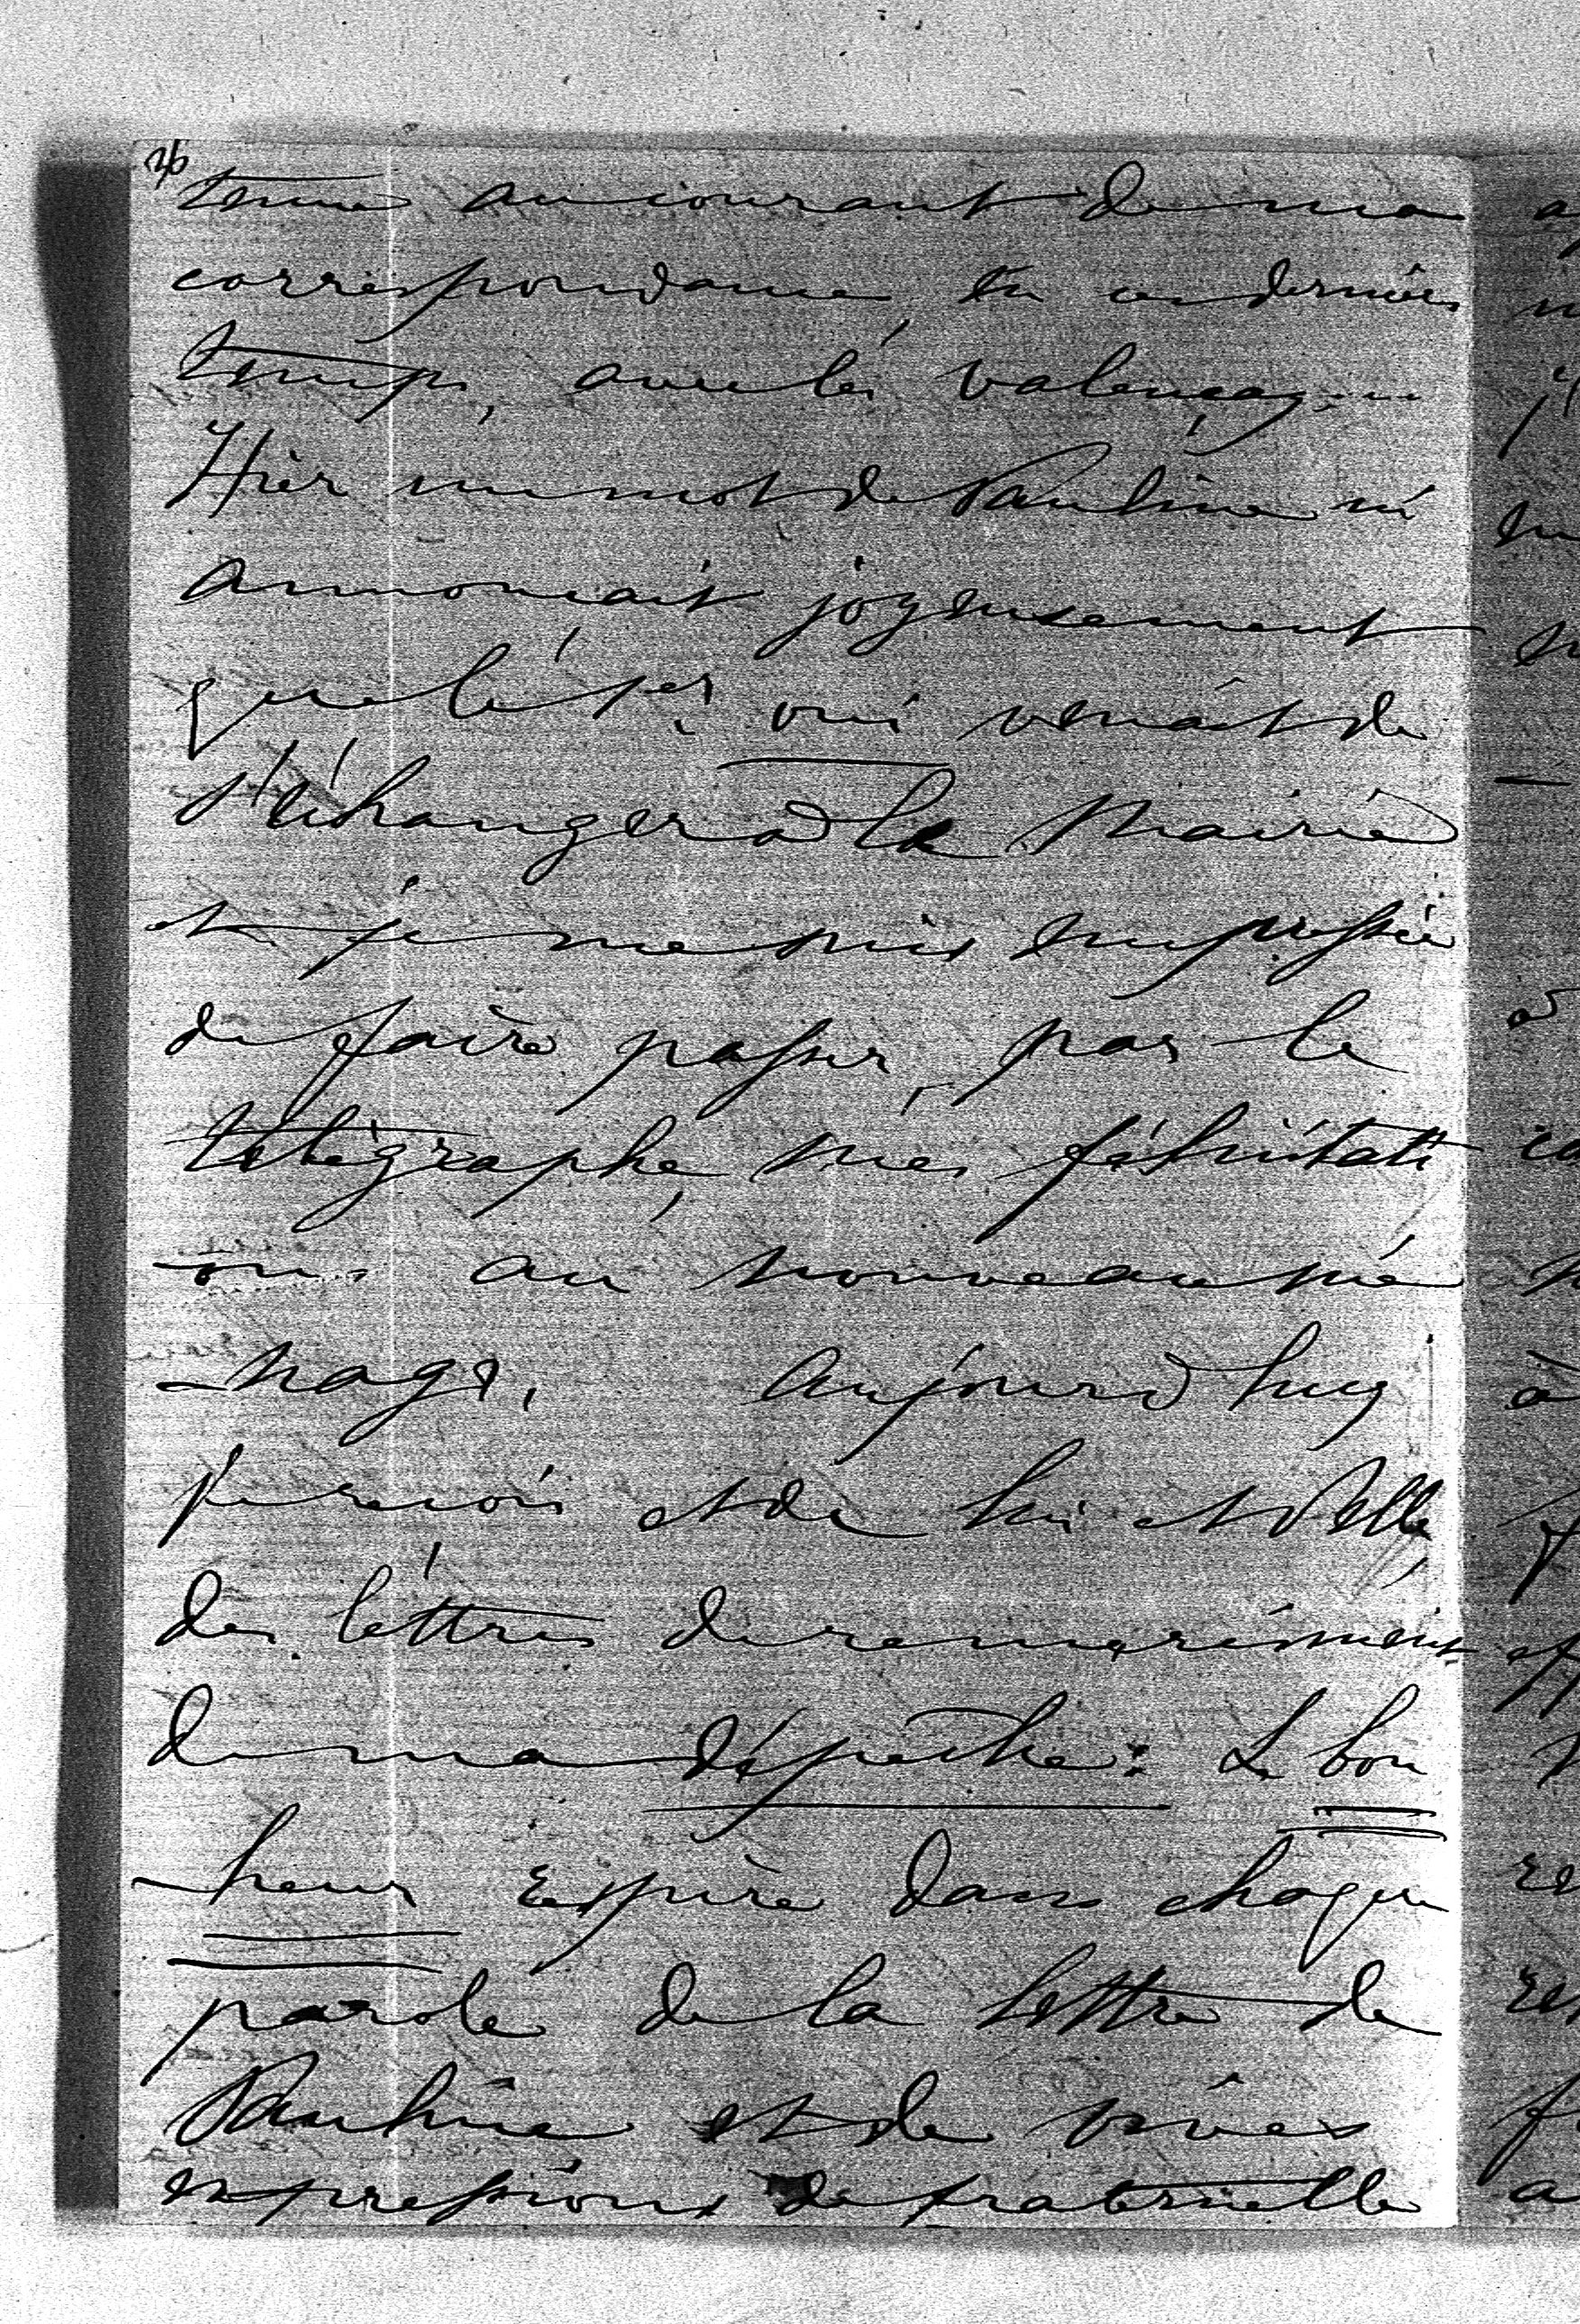 26
tenue au courant de ma
correspondance, en ces derniers
temps, avec les Valençay...
Hier un mot de Pauline m'
annonçait joyeusement
que le 1er oui venait de
s'échanger à la Mairie
et je me suis empressée
de faire passer, par le
télégraphe, mes félicitati
-ons au nouveau mé
-nage. Aujourd'huy
je reçois et de lui et d'elle,
des lettres de remerciements
de ma dépêche: Le bon
-heur respire dans chaque
parole de la lettre de
Pauline et de vives
expressions de fraternelle